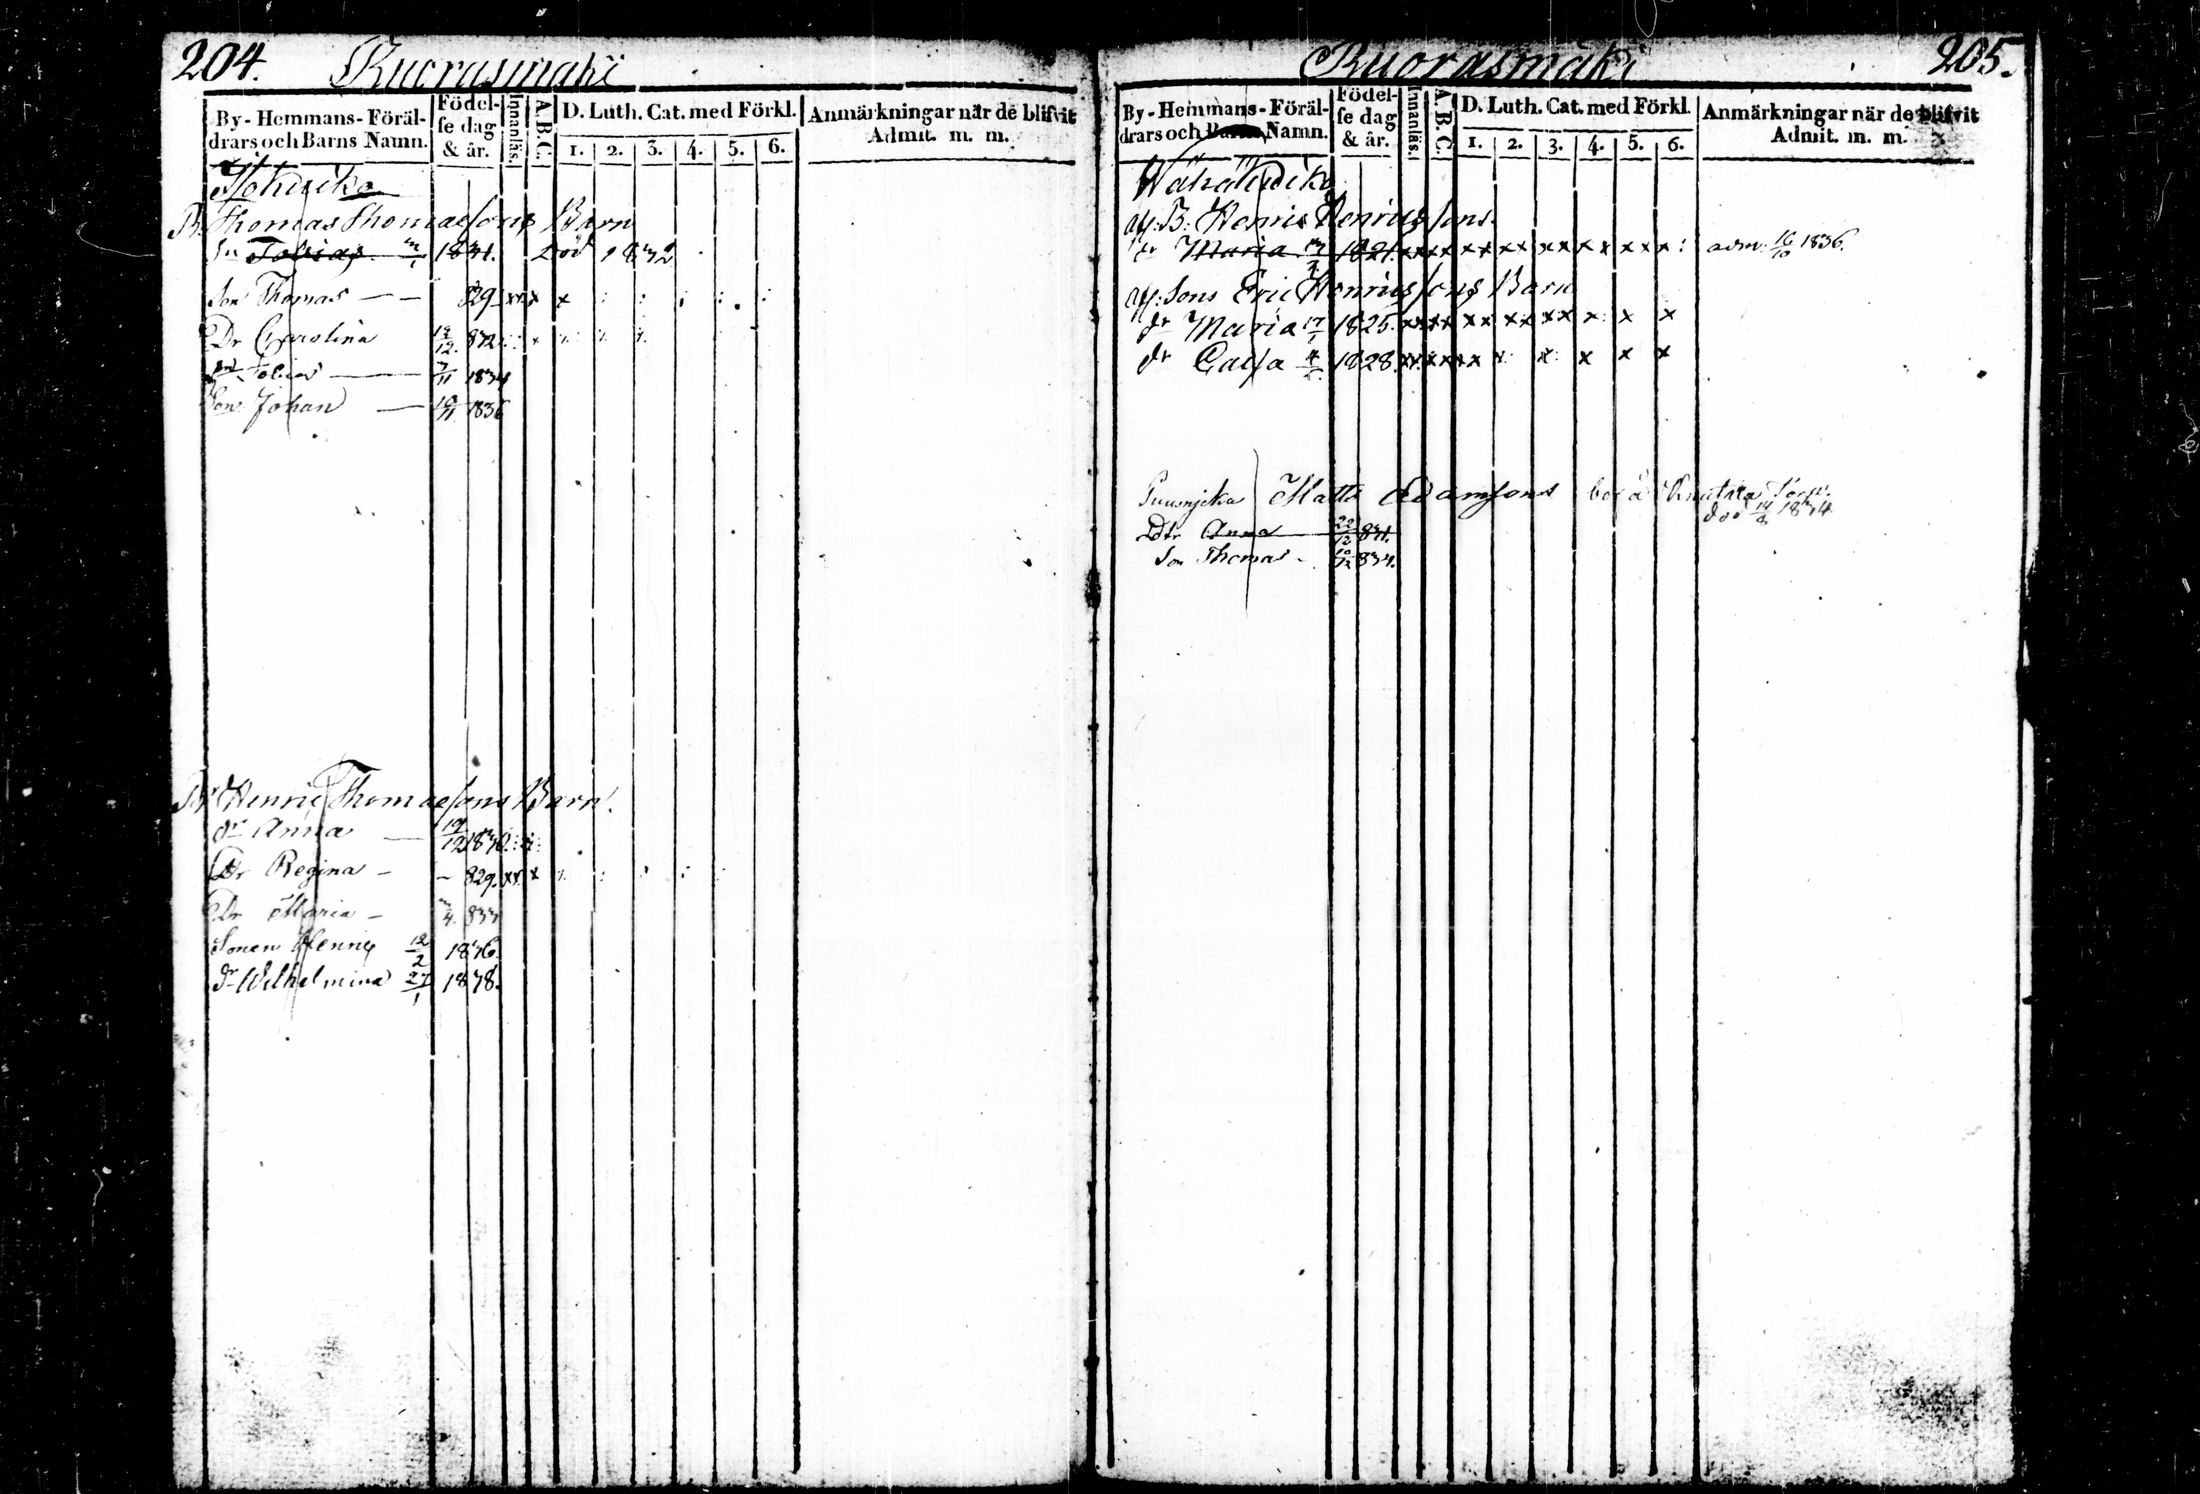 204. Ruorasmäki
By- Hemmans- Föräl-
drars och Barns Namn.
Födel-
se dag
& år.
Innanläs.
A. B. C.
D. Luth. Cat. med Förkl.
1. 2. 3. 4. 5. 6.
Anmärkningar när de blifvit
Admit. m. m.
B. Thomas Thomaesons Barn
Sn Tobias 1831. Död 1832
Son Thomas — — 829 xx x x
Dr Carolina 12/12. 832
Tobias — 7/11 1834
Son Johan — 10/11 1836
Henric Thomaesons Barn.
dr Anna — 19/12 1830
Dr Regina - - 829. xx x
Dr Maria - 4. 833
Sonen Henric 12/2 1836.
dr Wilhelmina 27/1 1838.
Ruorasmäki 205.
By- Hemmans- Föräl-
drars och Barns Namn.
Födel-
se dag
& år.
Innanläs.
A. B. C.
D. Luth. Cat. med Förkl.
1. 2. 3. 4. 5. 6.
Anmärkningar när de blifvit
Admit. m. m.
af. B. Henric Henricssons
dr Maria 1821. adm. 16/10 1836.
af. Sons Eric Henricssons Barn
dr Maria 17/1 1825.
dr Caisa 1828.
Matts Adamsons bor å Torp.
Dtr Anna 22/12 831. död 14/3 1834
Son Thomas - 10/12 834.